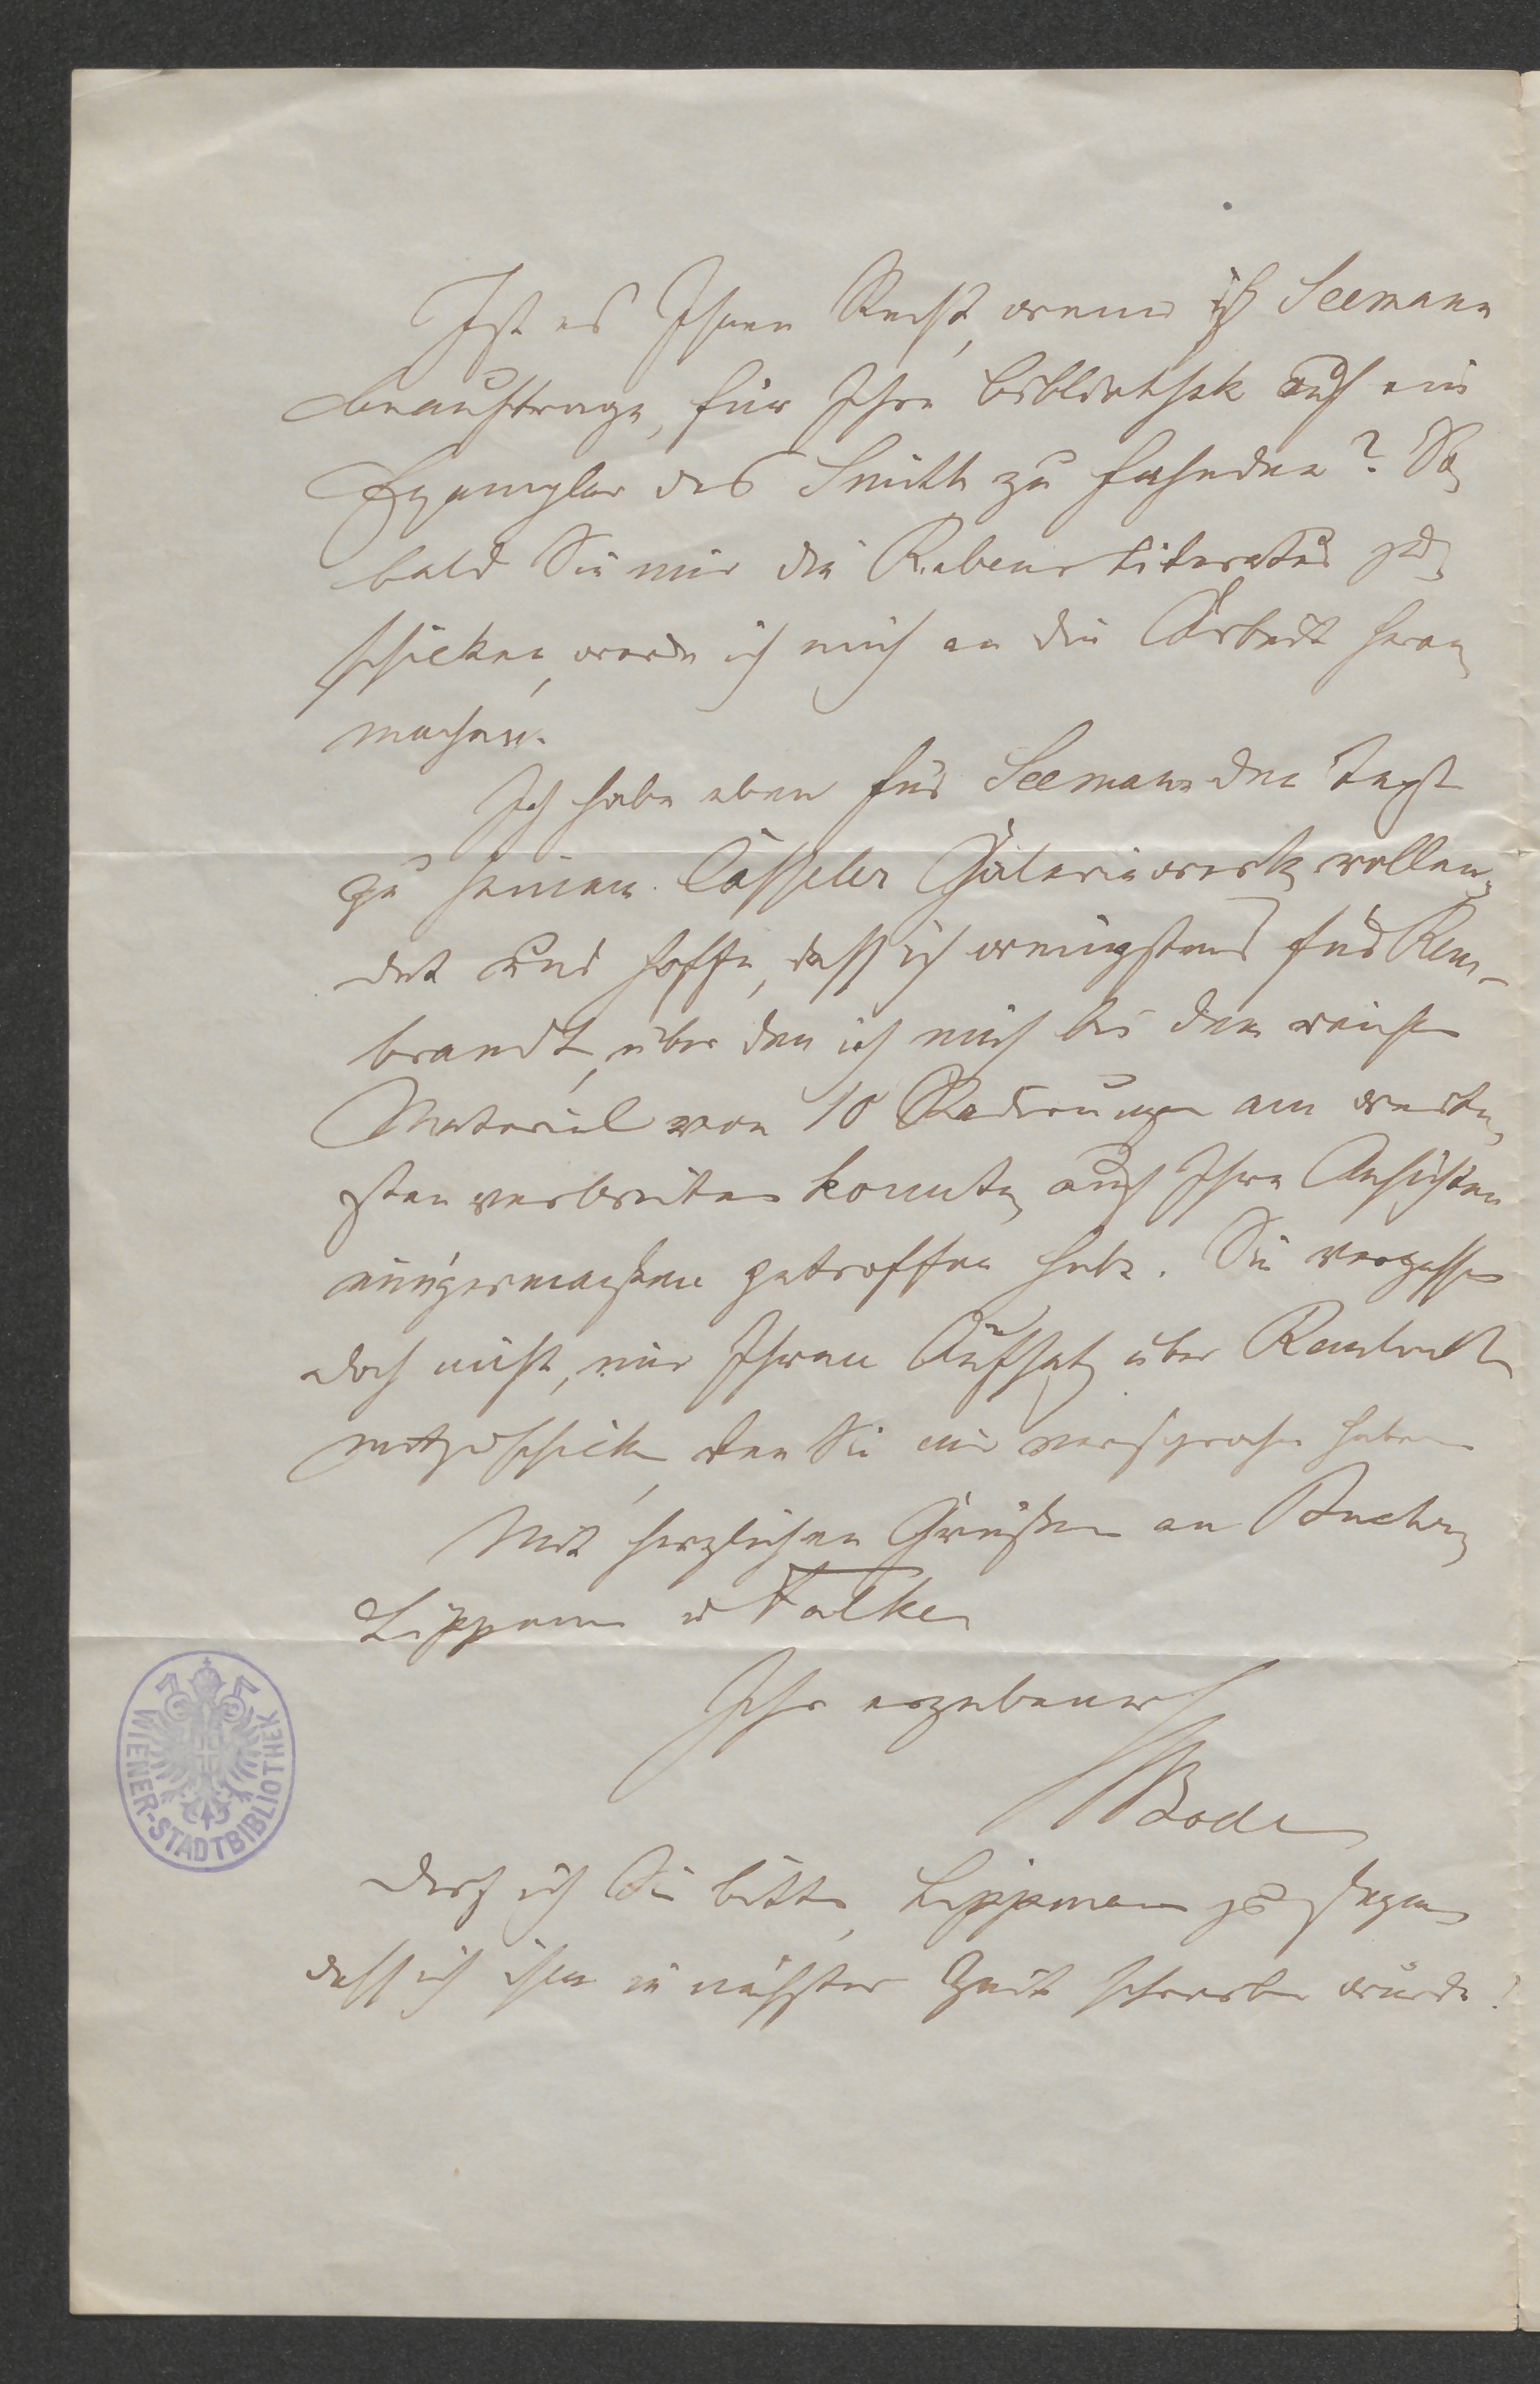 Ist es Ihnen Recht, wenn ich Seemann
beauftrage, für Ihre Bibliothek auf ein
Exemplar des Smith zu fahnden? So
bald Sie mir die Rubens Literatur zu
schicken, werde ich mich an die Arbeit heran
machen.
Ich habe eben für Seemann den Text
zu seinem Casseler Galeriewerk vollen-
det und hoffe, daß ich wenigstens für Rem-
brandt, über den ich mich bei dem reichen
Material von 10 Radirungen am weite
sten verbreiten konnte, auch Ihre Ansichten
einigermaßen getroffen habe. Sie vergessen
doch nicht, mir Ihren Aufsatz über Rembrandt
mitzuschicken, den Sie mir versprochen haben
Mit herzlichen Grüßen an Bucher,
Lippmann u Falke
Ihr ergebener
WBode
Darf ich Sie bitten, Lippmann zu sagen
daß ich ihm in nächster Zeit schreiben würde!
WIENER-STADTBIBLIOTHEK